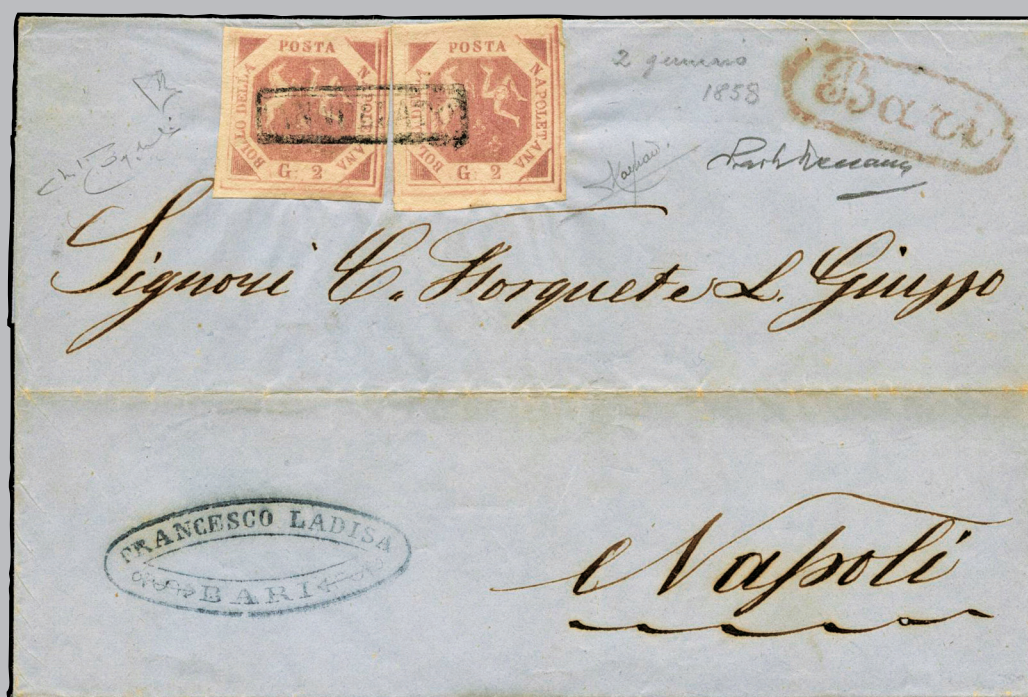 POSTA NAPOLETANA
BOLLO DELLA
G. 2
POSTA NAPOLETANA
BOLLO DELLA
G. 2
ANNULLATO
2 gennaio
1858
Bari
Signori C. Forquet e L. Giusso
FRANCESCO LADISA
BARI
Napoli